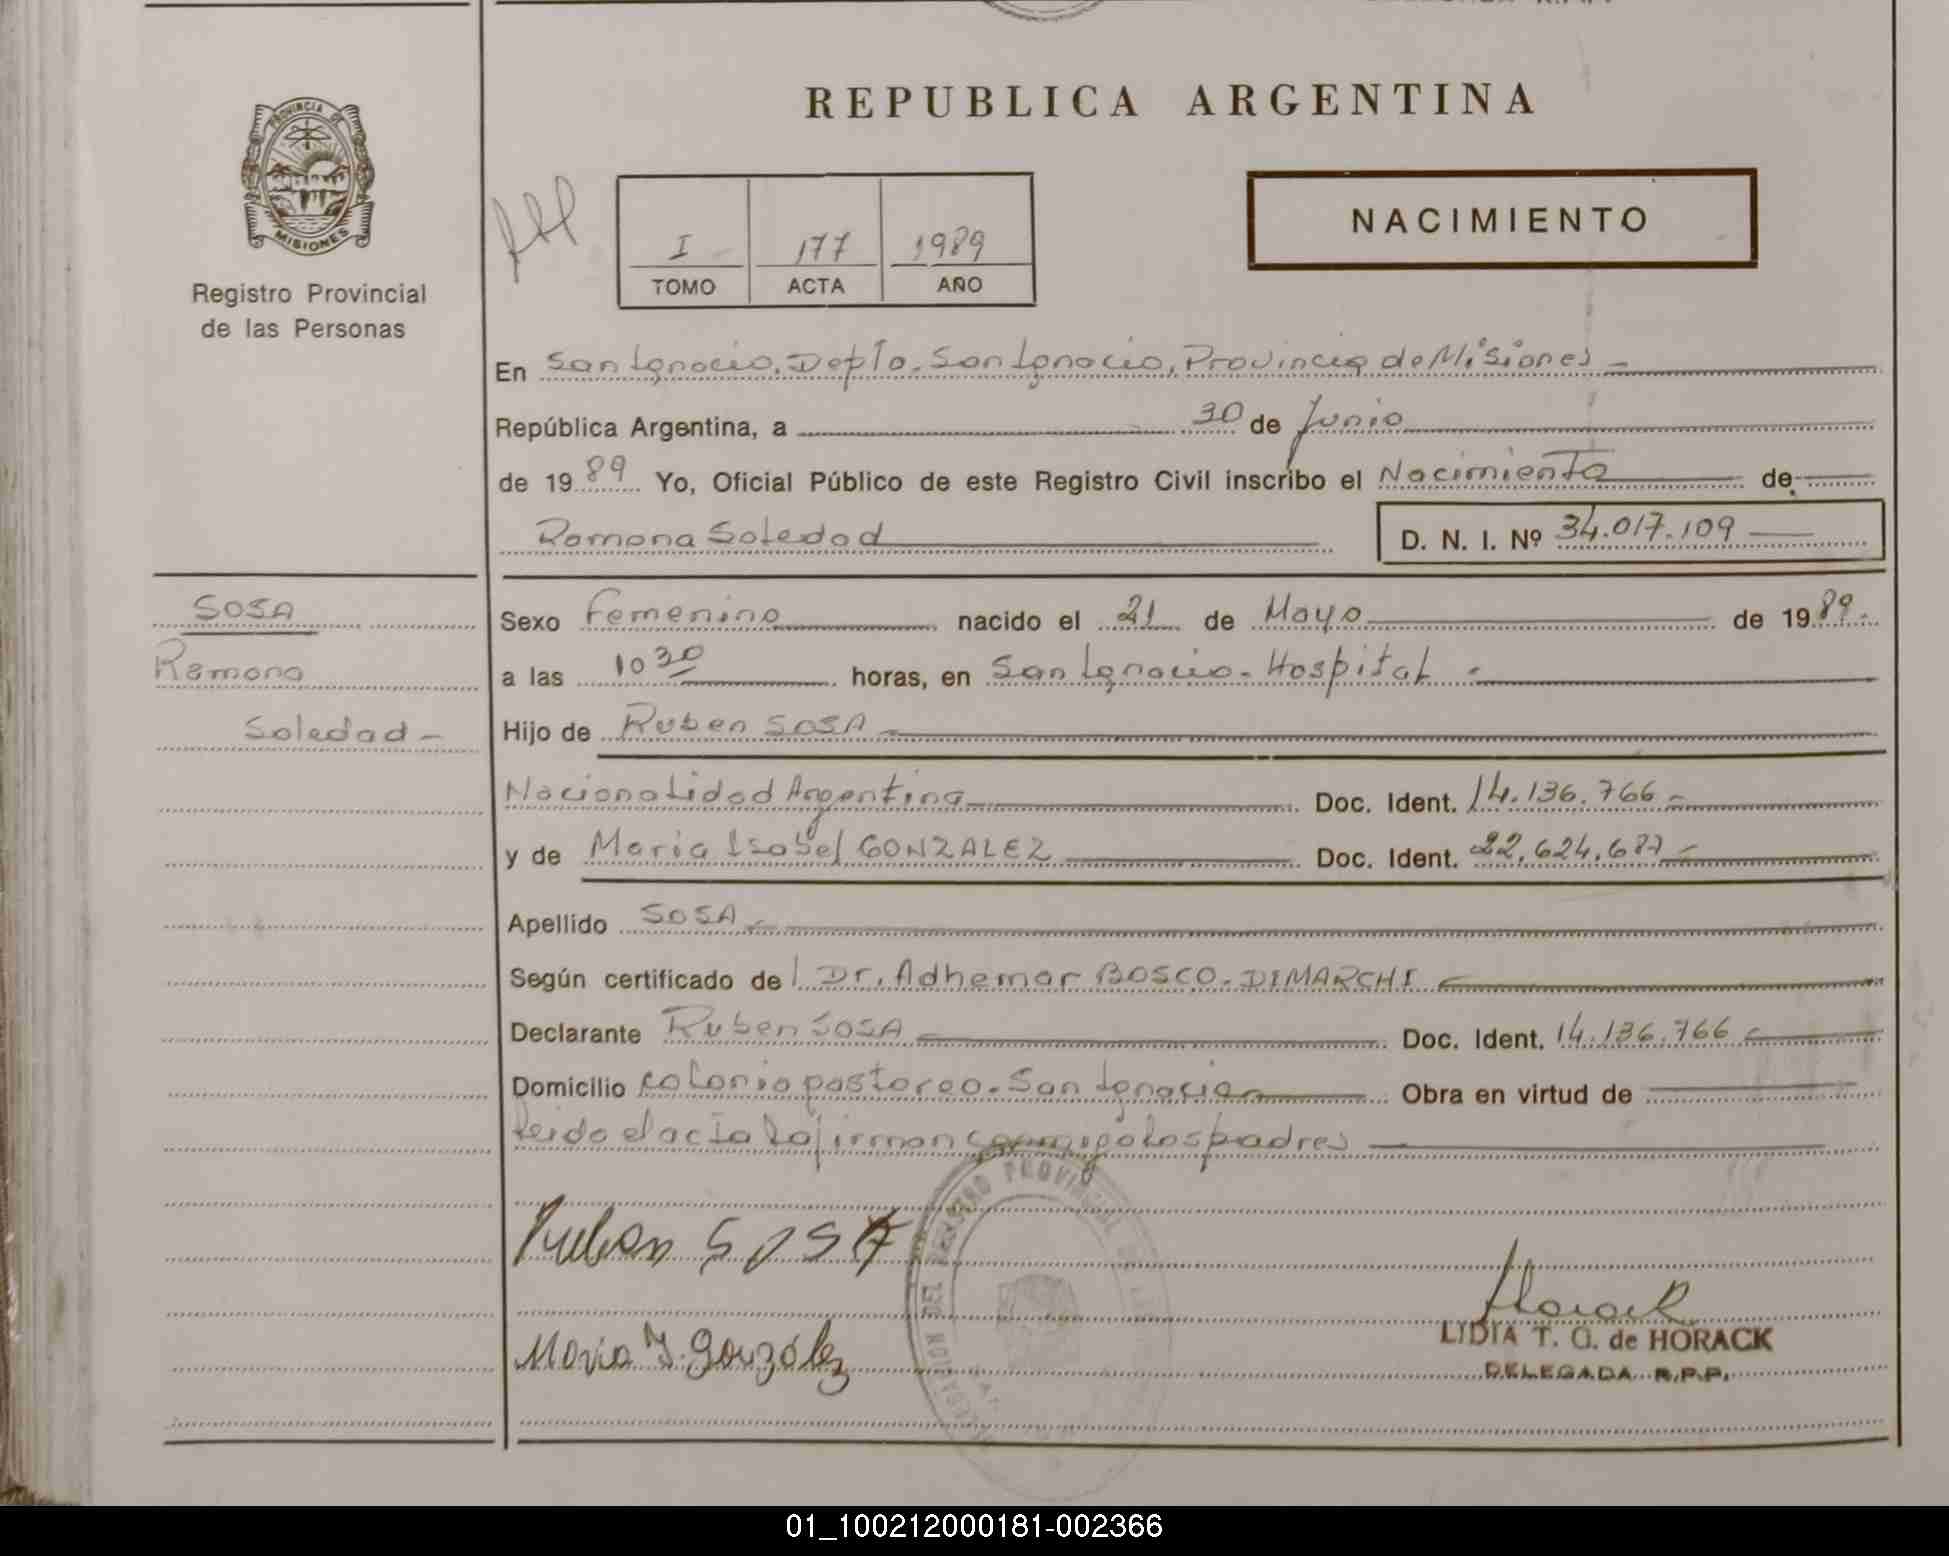 REPUBLICA ARGENTINA
PROVINCIA DE
MISIONES
Registro Provincial
de las Personas
I 177 1989
TOMO ACTA AÑO
NACIMIENTO
En San Ignacio, Depto. San Ignacio, Provincia de Misiones
República Argentina, a 30 de Junio
de 1989 Yo, Oficial Público de este Registro Civil inscribo el Nacimiento de
Ramona Soledad D. N. I. Nº 34.017.109
SOSA
Ramona
Soledad -
Sexo Femenino nacido el 21 de Mayo de 1989.
a las 10 30 horas, en San Ignacio - Hospital.
Hijo de Ruben SOSA
Nacionalidad Argentina Doc. Ident. 14.136.766
y de Maria Isabel GONZALEZ Doc. Ident. 22.624.687
Apellido SOSA
Según certificado de l Dr. Adhemar BOSCO. DIMARCHI
Declarante Ruben SOSA Doc. Ident. 14.136.766
Domicilio colonia pastoreo. San Ignacio Obra en virtud de
leido el acta la firman conmigo los padres
Ruben SOSA
Horack
LIDIA T. G. de HORACK
DELEGADA R.P.P.
Maria I. González
DEL REGISTRO PROVINCIAL DE LAS
01_100212000181-002366